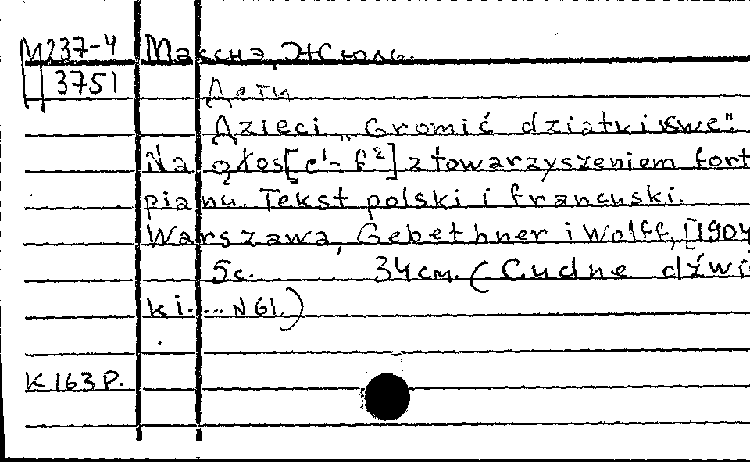 М237-4 Массне, Жюль.
3751
Дети
Dzieci „Gromić dziatki swe".
Na głos [c¹-f²] z towarzyszeniem fort
pianu. Tekst polski i francuski.
Warszawa, Gebethner i Wolff, [1904
5с. 34см. (Cudne dźwię
ki.... N61.)
К163Р.